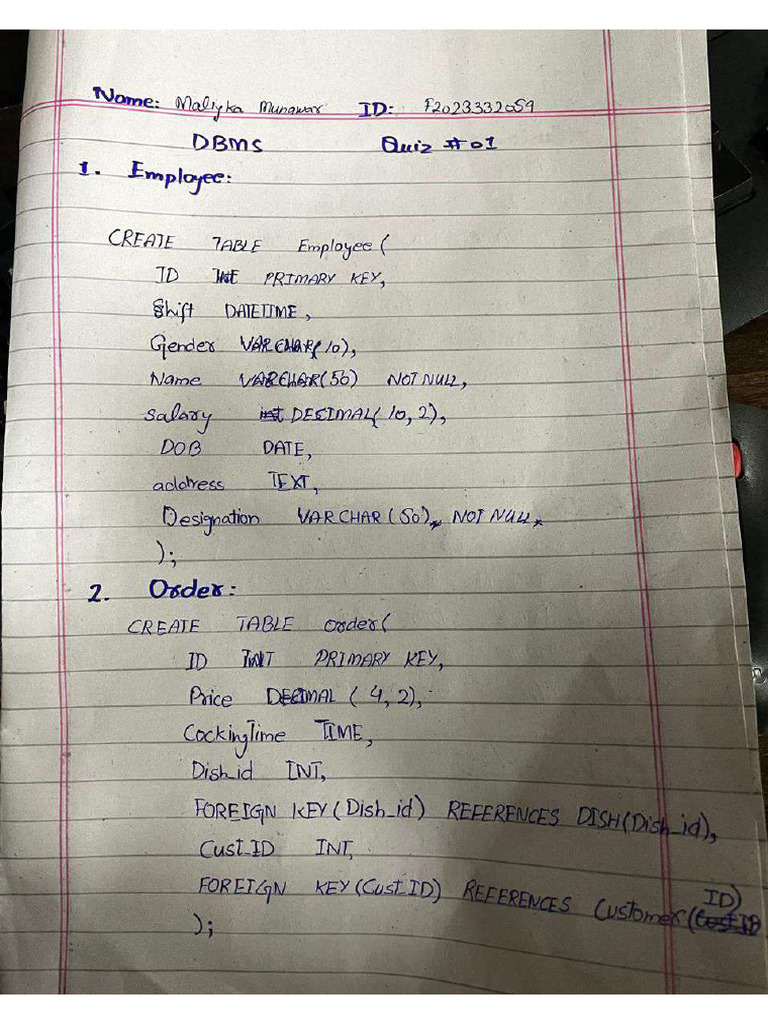 Name: Maliyka Munawar ID: F2023332059
DBMS Quiz # 01
1. Employee:
CREATE TABLE Employee (
ID INT PRIMARY KEY,
Shift DATETIME,
Gender VARCHAR(10),
Name VARCHAR(50) NOT NULL,
salary DECIMAL(10,2),
DOB DATE,
address TEXT,
Designation VARCHAR (50), NOT NULL,
);
2. Order:
CREATE TABLE Order(
ID INT PRIMARY KEY,
Price DECIMAL (4,2),
CockingTime TIME,
Dish_id INT,
FOREIGN KEY(Dish_id) REFERENCES DISH(Dish_id),
Cust_ID INT,
FOREIGN KEY(Cust_ID) REFERENCES Customer(ID)
);